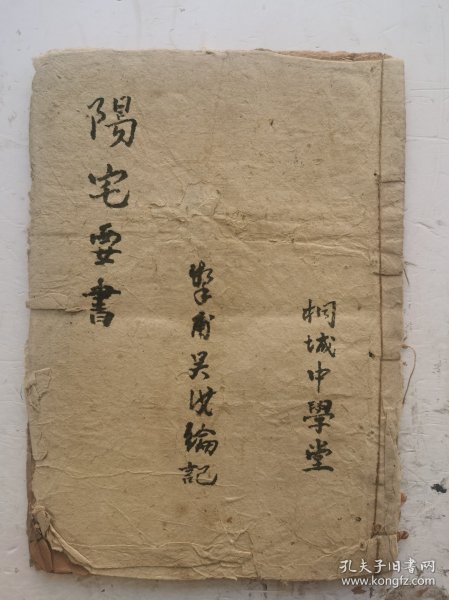 桐城中學堂
摯甫吴汝綸記
陽宅要書
孔夫子旧书网
www.kongfz.com